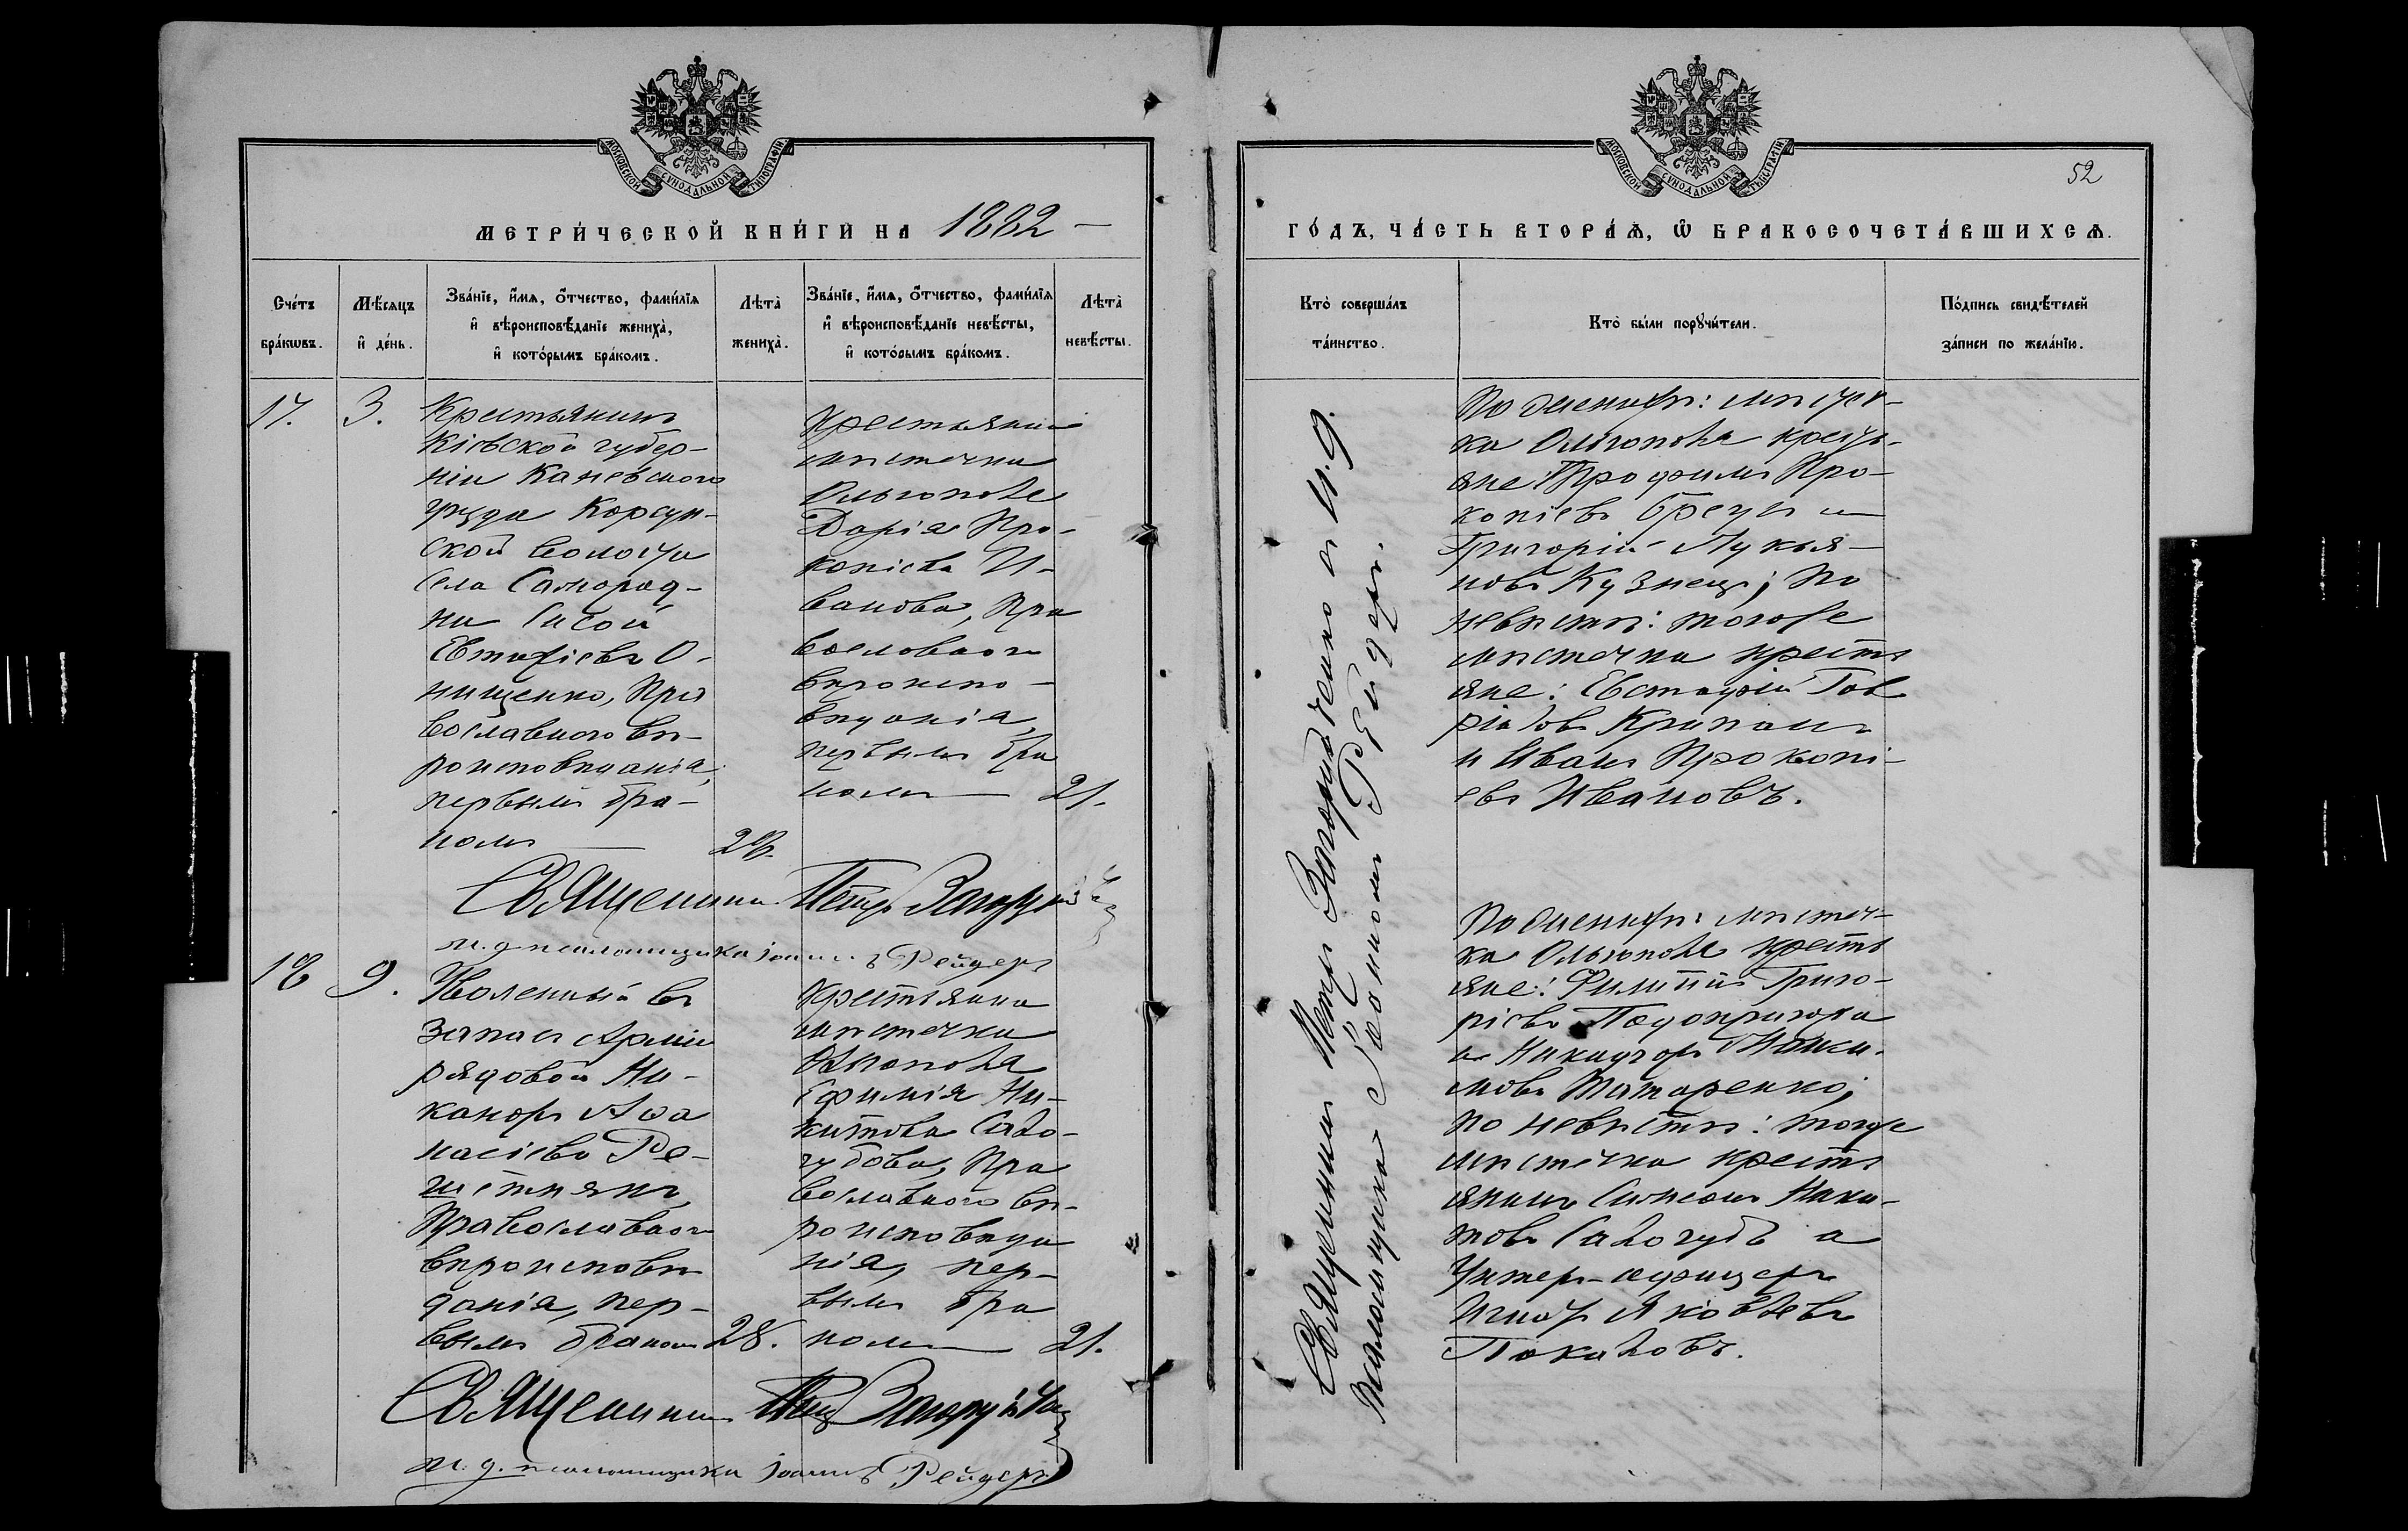 МОСКОВСКОЙ СѴНОДАЛЬНОЙ ТИПОГРАФІИ
МЕТРИ́ЧЕСКОЙ КНИ́ГИ НА 1882 –
Сче́тъ бра́кωвъ.
Мѣ́сяцъ и҆ де́нь.
Зва́нїе, и҆́мѧ, ѻ҆́тчество, фами́лїѧ
и҆ вѣроисповѣ́данїе жениха̀,
и҆ кото́рымъ бра́комъ.
Лѣта̀ жениха̀.
Зва́нїе, и҆́мѧ, ѻ҆́тчество, фами́лїѧ
и҆ вѣроисповѣ́данїе невѣ́сты,
и҆ кото́рымъ бра́комъ.
Лѣта̀ невѣ́сты.
17.
3.
Крестьянинъ
Кіевской губер-
ніи Каневскаго
уѣзда Корсун-
ской волости
села Самород-
ни Сисой
Евтихіевъ О-
нищенко, Пра
вославного вѣ-
роисповѣданія,
первымъ бра-
комъ
26.
Крестьянка
мѣстечка
Ольгополя
Дарія Про-
копіева И-
ванова, Пра
вославного
вѣроиспо-
вѣданія,
первымъ бра
комъ
21.
Священникъ Петръ
и. д. псаломщика Іоаннъ Рейдеръ
18
9.
Уволенный въ
запасъ Арміи
рядовой Ни-
каноръ Аѳа
насіевъ Ре-
шетнякъ,
Православного
вѣроисповѣ
данія, пер-
вымъ бракомъ
28.
Крестьянка
мѣстечка
Ольгополя
Ефимія Ни-
китова Само-
губова, Пра
вославного вѣ-
роисповѣда
нія, пер-
вымъ бра
комъ
21.
Священникъ Петръ
и. д. псаломщика Іоаннъ Рейдеръ
МОСКОВСКОЙ СѴНОДАЛЬНОЙ ТИПОГРАФІИ
52
ГО́ДЪ, ЧА́СТЬ ВТОРА́Ѧ, Ѽ БРАКОСОЧЕТА́ВШИХСѦ.
Кто̀ соверша́лъ та́инство.
Кто̀ бы́ли порꙋчи́тели.
По́дпись свидѣ́телей
за́писи по жела́нїю.
Священникъ Петръ съ и. д.
Псаломщика Іоанномъ Рейдеръ.
По женихѣ: мѣстеч-
ка Ольгополя кресть-
яне Трофимъ Про-
копіевъ и
Григорій Лукья-
новъ Кузнецъ; По
невѣстѣ: тогоже
мѣстечка кресть
яне: Евстафій Гав
риловъ
и Иванъ Прокопі-
евъ Ивановъ.
По женихѣ: мѣстеч-
ка Ольгополя кресть
яне: Филиппъ Григо-
ріевъ Подопригора
и Никифоръ Макси-
мовъ Татаренко;
по невѣстѣ: тогоже
мѣстечка кресть
янинъ Симеонъ Ники-
товъ а
Унтеръ-офицеръ
Игнатъ Яковлевъ